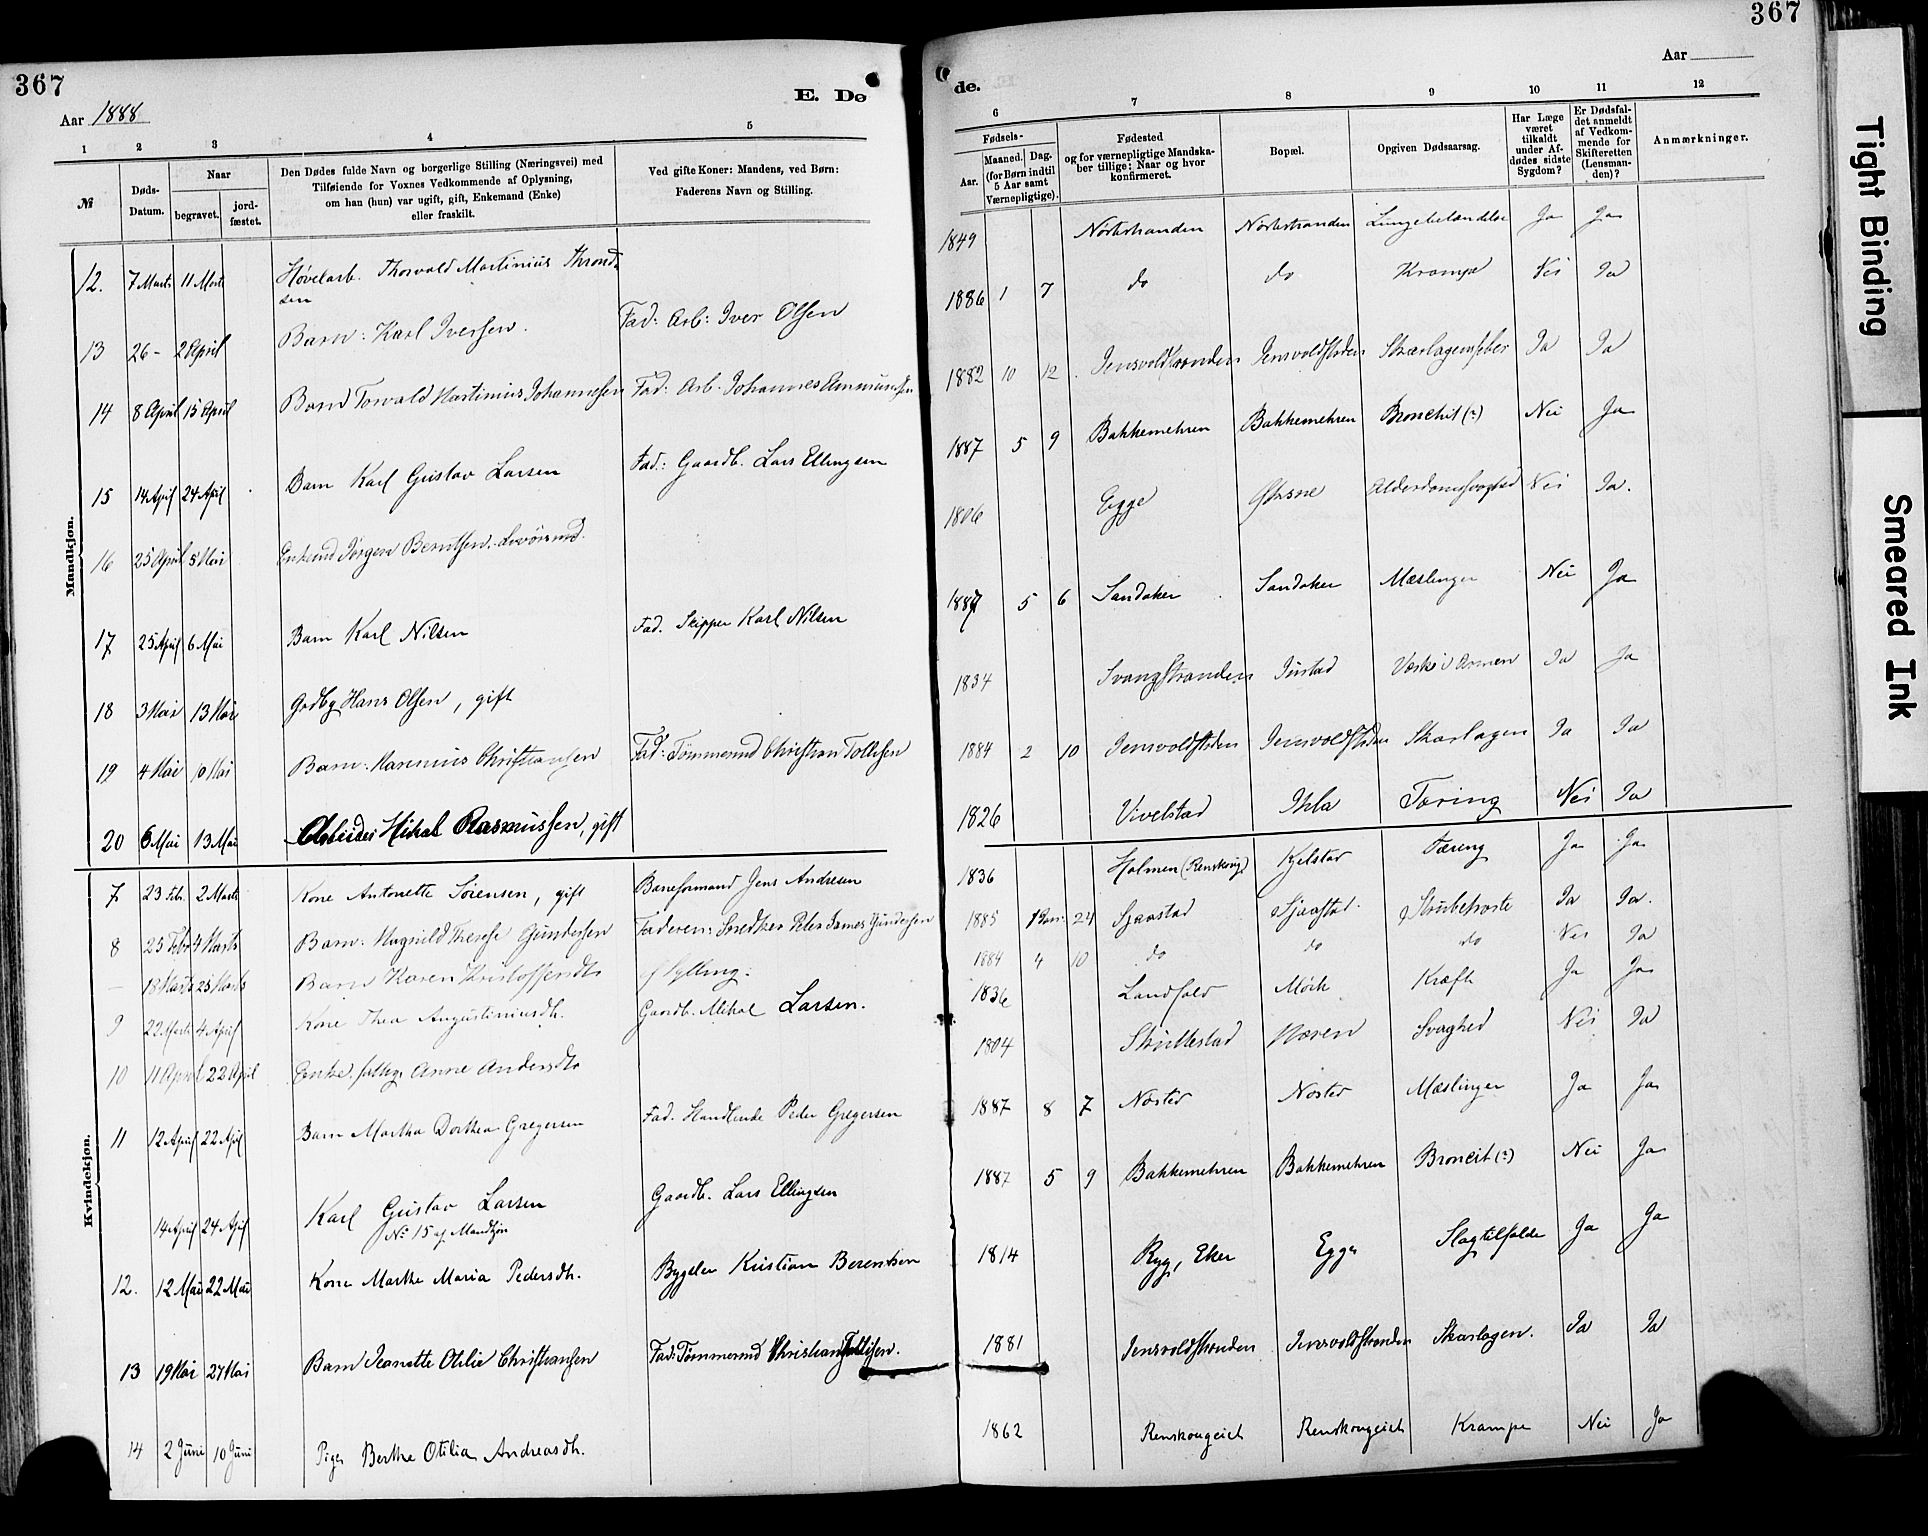 367
Aar 1888
E. Dø
1 2 3 4 5
№
Døds-
Datum.
Naar
begravet.
jord-
fæstet.
Den Dødes fulde Navn og borgerlige Stilling (Næringsvei) med
Tilføiende for Voxnes Vedkommende af Oplysning,
om han (hun) var ugift, gift, Enkemand (Enke)
eller fraskilt.
Ved gifte Koner: Mandens, ved Børn:
Faderens Navn og Stilling.
Mandkjøn.
12. 7 Marts 11 Marts Høvelarb. Thorvald Martinius Thrond-
sen
13 26 - 2 April Barn: Karl Iversen. Fad: Arb: Iver Olsen
14 8 April 15 April Barn Torvald Martinius Johannesen Fad: Arb. Johannes Ammundsen
15 14 April 24 April Barn Karl Gustav Larsen Fad.: Gaardb. Lars Ellingsen
16 25 April 5 Mai Enkemd Jørgen Berntsen
17 25 April 6 Mai Barn Karl Nilsen Fad. Skipper Karl Nilsen
18 3 Mai 13 Mai Gdbg Hans Olsen, gift
19 4 Mai 10 Mai Barn: Marinius Christiansen Fad: Tømmermd Christian Tollefsen
20 6 Mai 13 Mai Arbeider Mikal Rasmussen, gift
Kvindekjøn.
7 23 Febr. 2 Marts Kone Antonette Sørensen, gift Baneformand Jens Andresen
8 25 Febr 4 Marts Barn: Magnild Therese Gundersen Faderen: Snedker Peter James Gundersen
– 18 Marts 25 Marts Barn Karen Kristoffersdtr af Sylling.
9 22 Marts 4 April Kone Thea Augustiniusdh. Gaardb. Mikal Larsen.
10 11 April 22 April Enke. fattig Anne Andersdtr
11 12 April 22 April Barn Martha Dorthea Gregersen Fad. Handlende Peder Gregersen
14 April 24 April Karl Gustav Larsen Gaardb. Lars Ellingsen
№ 15 af Mandkjøn
12. 12 Mai 22 Mai Kone Marthe Maria Pedersdh. Bygsler Kristian Berentsen
13 19 Mai 27 Mai Barn Jeanette Otilie Christiansen Fad: Tømmermd Christian Tollefsen.
14 2 Juni 10 Juni Pige Berthe Otilia Andreasdh.
367
Aar
de.
6 7 8 9 10 11 12
Fødsels-
Aar.
Maaned. Dag.
(for Børn indtil
5 Aar samt
Værnepligtige).
Fødested
og for værnepligtige Mandska-
ber tillige: Naar og hvor
konfirmeret.
Bopæl.
Opgiven Dødsaarsag.
Har Læge
været
tilkaldt
under Af-
dødes sidste
Sygdom?
Er Dødsfal-
det anmeldt
af Vedkom-
mende for
Skifteretten
(Lensman-
den)?
Anmærkninger.
1849 Nordstranden Nordstranden Lungebetændelse Ja Ja
1886 1 7 do do Krampe Nei Ja
1882 10 12 Jensvoldstranden Jensvoldstrden Skarlagensfeber Ja Ja
1887 5 9 Bakkemehren Bakkemehren Bronchit (?) Nei Ja
1806 Egge Alderdomssvaghed Nei Ja.
1887 5 6 Sandaker Sandaker Mæslinger Nei Ja
1834 Svangstranden Justad Værk i Armen Ja Ja
1884 2 10 Jensvoldstrden Jensvoldstrden Skarlagen Ja Ja
1826 Vivelstad Ihla Tæring Nei Ja
1836 Holmen (Renskoug) Kjelstad Tæring Ja Ja
1885 24 Sjaastad Sjaastad Strubehoste Ja Ja.
1884 4 10 do do do Nei Ja
1836 Landfald Mørk Kræft Ja Ja
1804 Skullestad Næren Svaghed Nei Ja
1887 8 7 Nøsted Nøsted Mæslinger Ja Ja
1887 5 9 Bakkemehren Bakkemehren Broncit (?) Nei Ja
1814 Ryg, Eker Egge Slagtilfælde Ja Ja
1881 Jensvoldstranden Jensvoldstranden Skarlagen. Ja Ja
1862 Renskougeiet Renskougeiet Krampe Nei Ja
Tight Binding
Smeared Ink